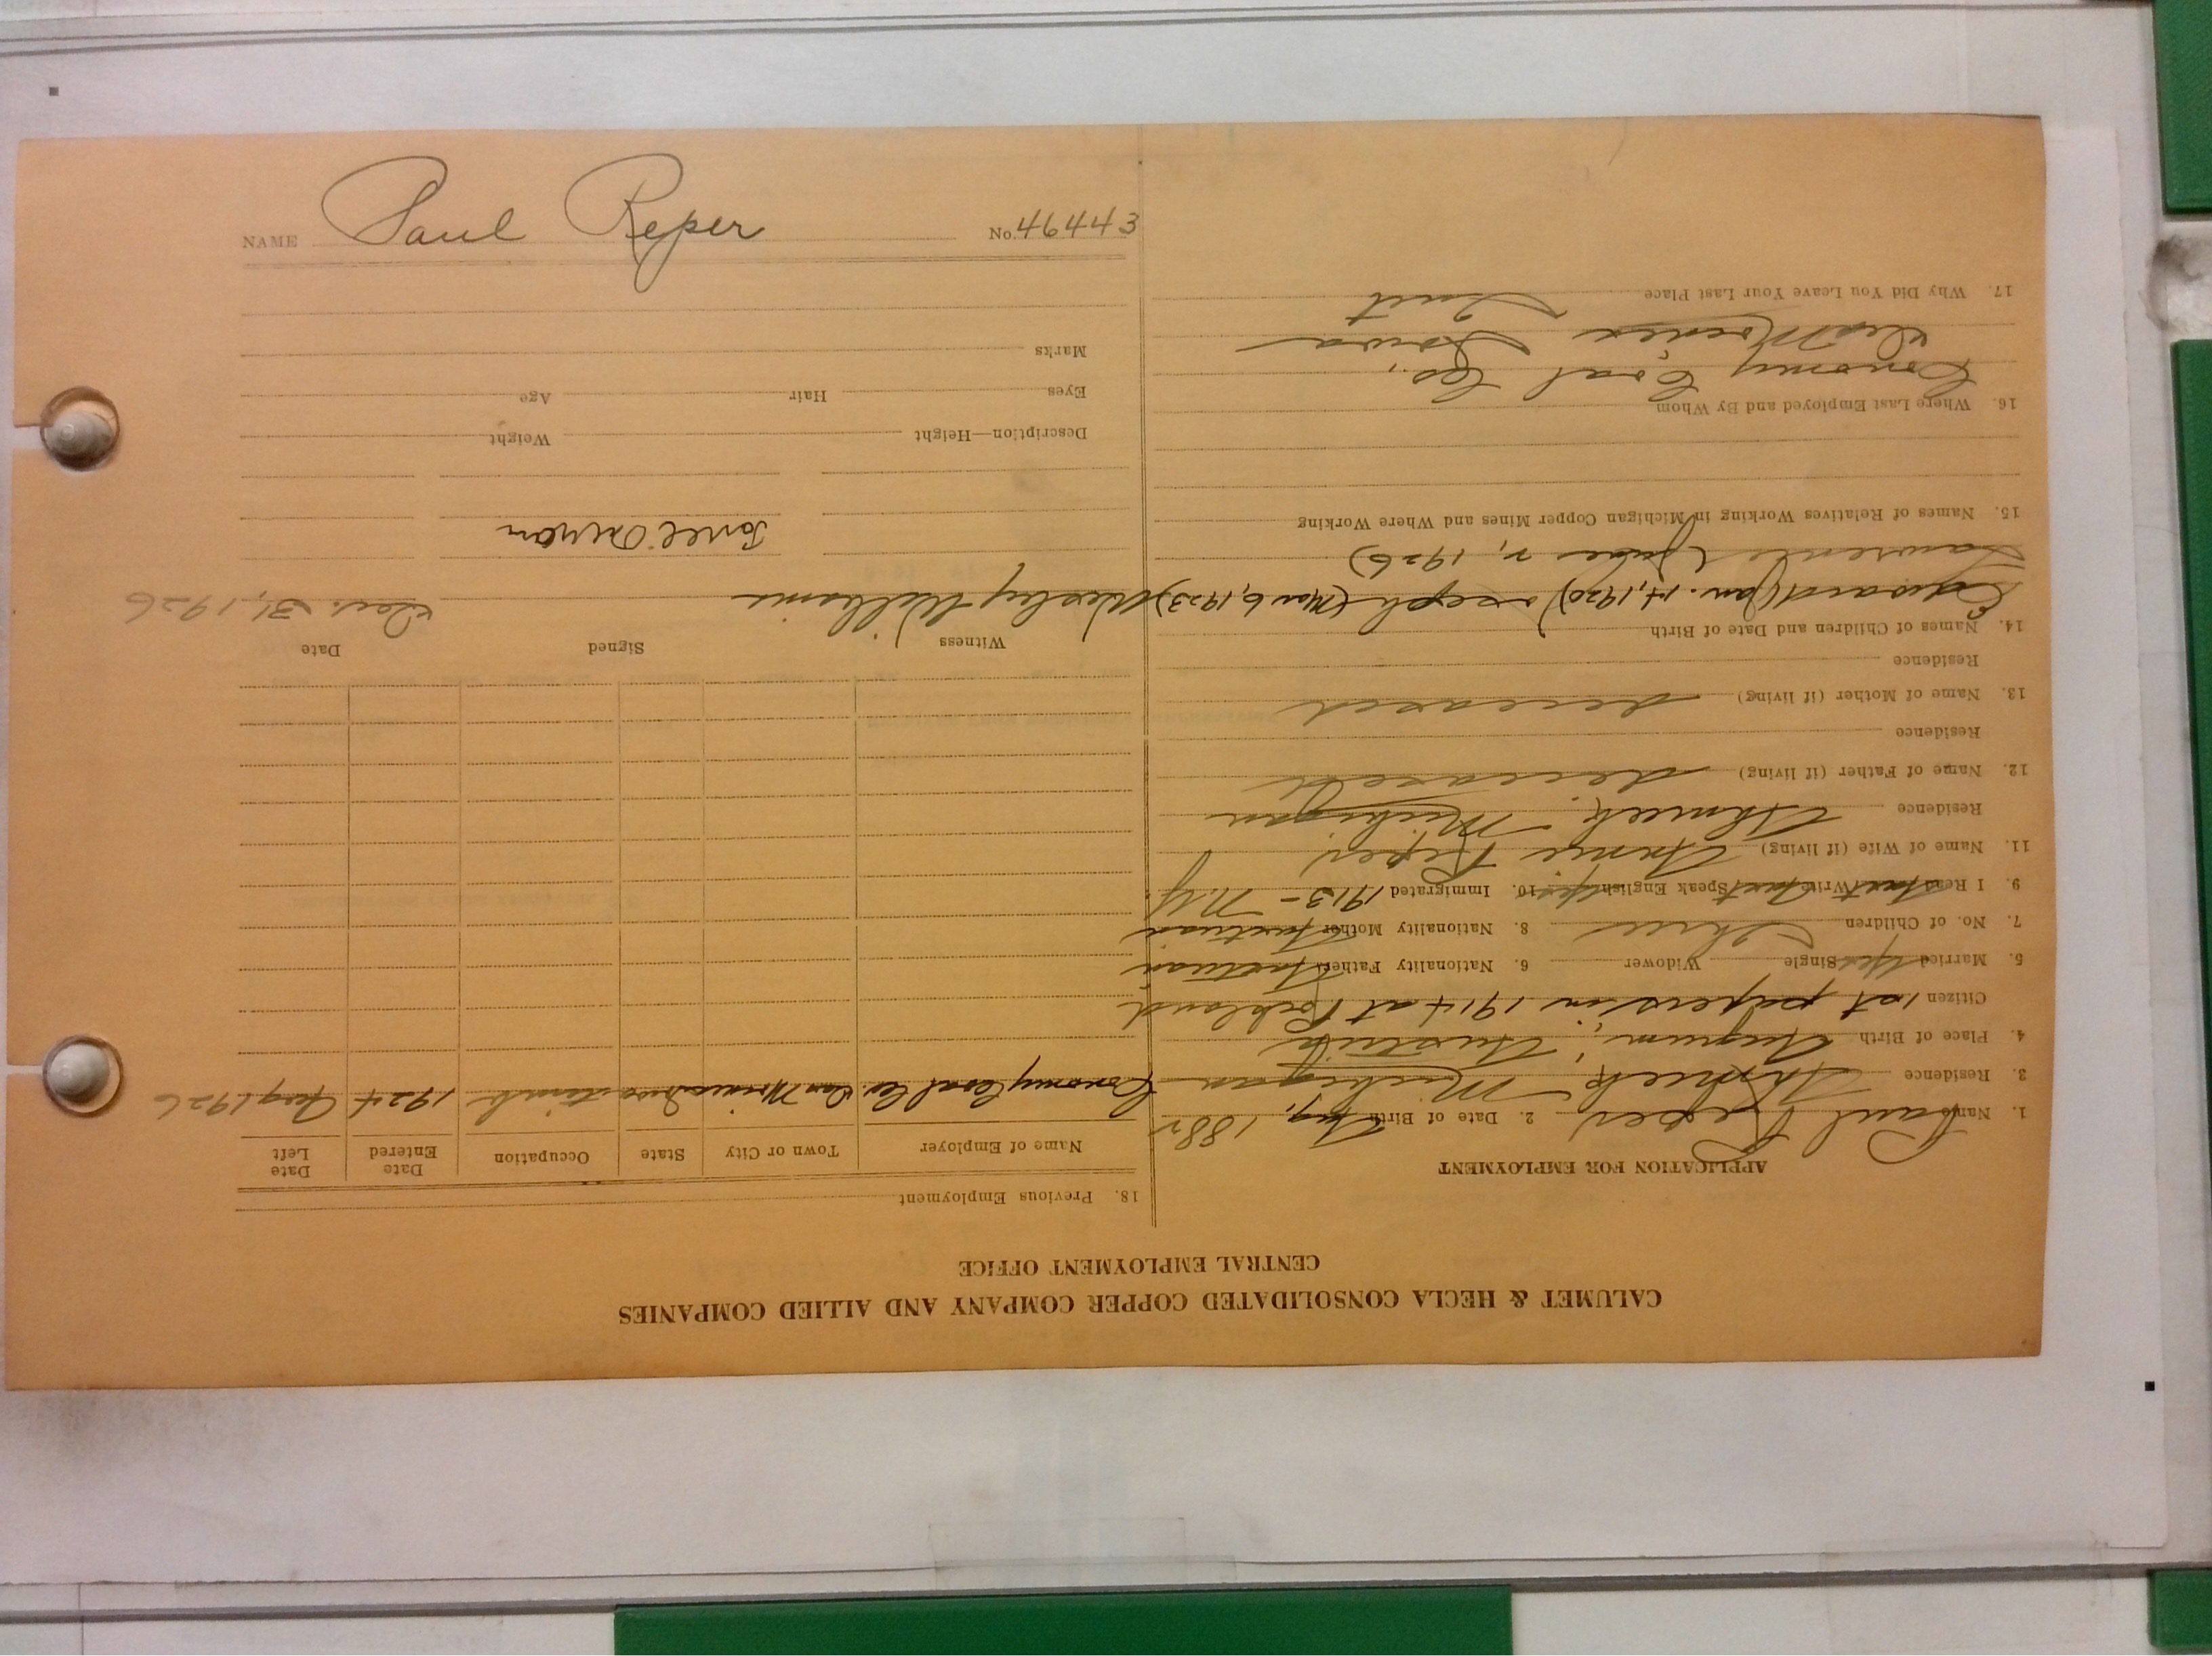 CALUMET & HECLA CONSOLIDATED COPPER COMPANY AND ALLIED COMPANIES
CENTRAL EMPLOYMENT OFFICE
APPLICATION FOR EMPLOYMENT
1. Name Paul Reper 2. Date of Birth Aug. 1885
3. Residence Ahmeek, Michigan
4. Place of Birth Austria
Citizen 1st papers in 1914 at Rockland
5. Married yes Single Widower 6. Nationality Father Austrian
7. No. of Children Three 8. Nationality Mother Austrian
9. I Read Aust Write Aust Speak English yes 10. Immigrated 1913 - N.Y.
11. Name of Wife (if living) Annie Reper
Residence Ahmeek, Michigan
12. Name of Father (if living) deceased
Residence
13. Name of Mother (if living) deceased
Residence
14. Names of Children and Date of Birth
Edward (Jan. 14, 1920) Joseph (Mar 6, 1923)
Lawrence (June 2, 1926)
15. Names of Relatives Working in Michigan Copper Mines and Where Working
16. Where Last Employed and By Whom
Economy Coal Co.,
Des Moines, Iowa
17. Why Did You Leave Your Last Place Quit
18. Previous Employment
Name of Employer Town or City State Occupation Date Entered Date Left
Economy Coal Co. Des Moines Iowa 1924 1926
Witness Signed Date
Wesley Williams Dec. 31, 1926
Description—Height Weight
Eyes Hair Age
Marks
NAME Paul Reper No. 46443